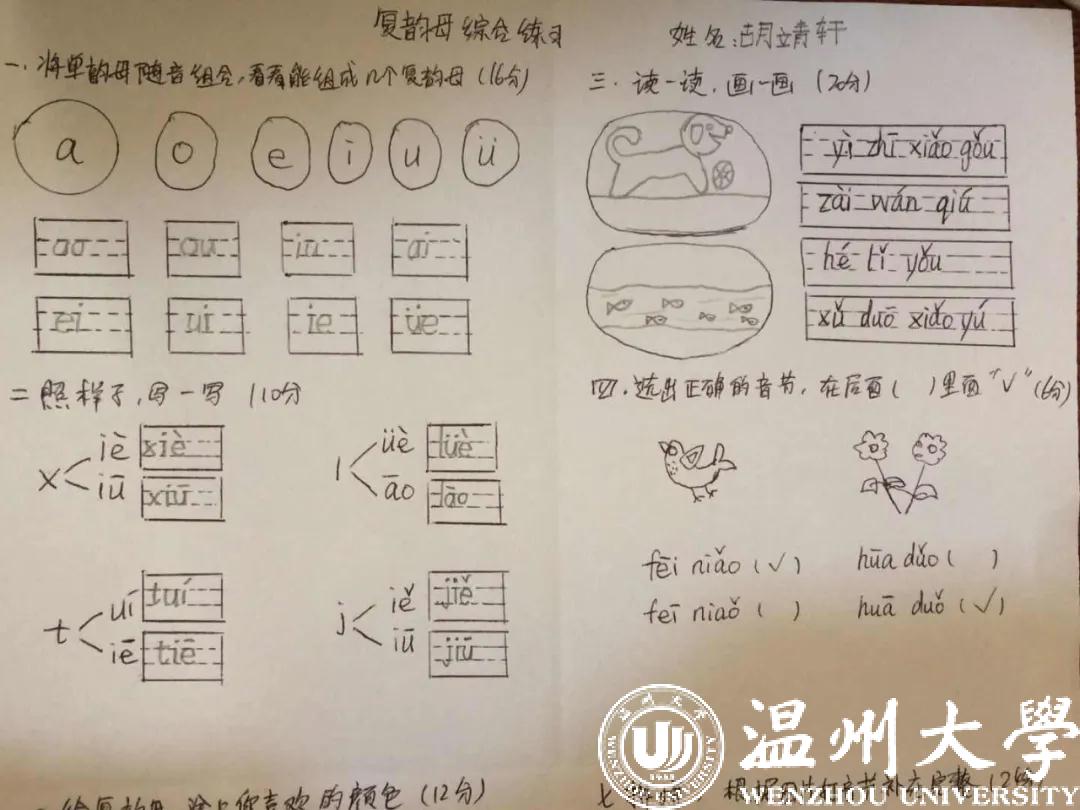 复韵母综合练习
姓名:胡靖轩
一、将单韵母随意组合,看看能组成几个复韵母(16分)
a o e i u ü
ao ou iu ai
ei ui ie üe
二 照样子,写一写 (10分)
x iè xiè
iū xiū
l üè lüè
āo lāo
t uí tuí
iē tiē
j iě jiě
iū jiū
三、读一读,画一画(20分)
yì zhī xiǎo gǒu
zài wán qiú
hé lǐ yǒu
xǔ duō xiǎo yú
四、选出正确的音节,在后面( )里面"√"(6分)
fēi niǎo(√) hūa dǔo( )
feī niaǒ( ) huā duǒ(√)
给复韵母 涂上你喜欢的颜色(12分)
补充完整
温州大學
WENZHOU UNIVERSITY